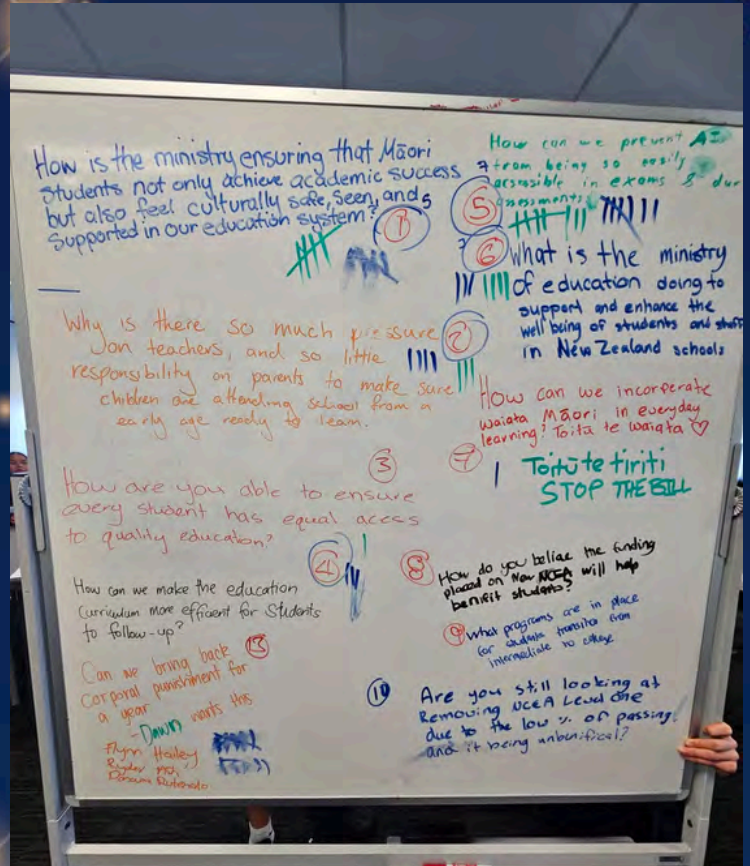 How is the ministry ensuring that Māori
students not only achieve academic success
but also feel culturally safe, seen, and
supported in our education system?
5
1
Why is there so much pressure
on teachers, and so little
responsibility on parents to make sure
children are attending school from a
early age ready to learn.
2
3
How are you able to ensure
every student has equal acess
to quality education?
4
How can we make the education
Curriculum more efficent for Students
to follow-up?
13
Can we bring back
corporal punishment for
a year
- Dawn wants this
Flynn Hailey
How can we prevent AI
7 from being so easily
in exams &
assessments
5
7
6
What is the ministry
of education doing to
support and enhance the
well being of students and staff
in New Zealand schools
How can we incorperate
waiata Māori in everyday
learning? Toitū te waiata ♡
7
Toitū te tiriti
STOP THE BILL
8
How do you beliae the funding
placed on New NCEA will help
benifit students?
9
What programs are in place
for students transition from
intermediate to college
10
Are you still looking at
Removing NCEA Level one
due to the low % of passing
and it being unbenifical?